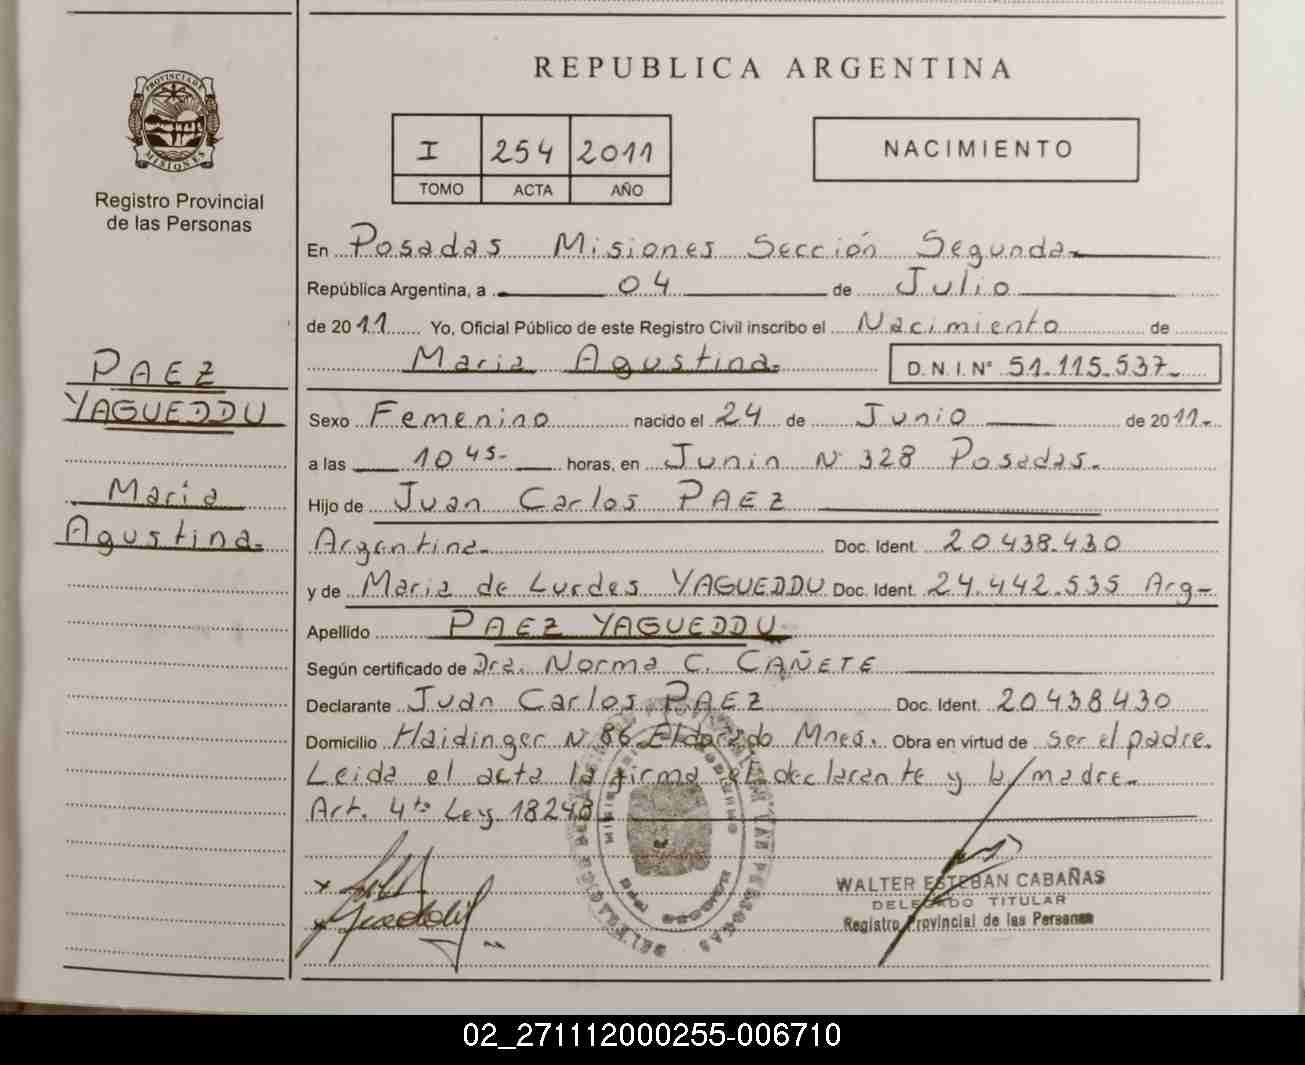 PROVINCIA DE
MISIONES
Registro Provincial
de las Personas
PAEZ
YAGUEDDU
Maria
Agustina.
REPUBLICA ARGENTINA
I 254 2011
TOMO ACTA AÑO
NACIMIENTO
En Posadas Misiones Sección Segunda
República Argentina, a 04 de Julio
de 2011 Yo, Oficial Público de este Registro Civil inscribo el Nacimiento de
Maria Agustina. D.N.I.Nº 51.115.537-
Sexo Femenino nacido el 24 de Junio de 2011.-
a las 10 45- horas, en Junin Nº 328 Posadas.
Hijo de Juan Carlos PAEZ
Argentina. Doc. Ident. 20.438.430
y de Maria de Lurdes YAGUEDDU Doc. Ident. 24.442.535 Arg-
Apellido PAEZ YAGUEDDU
Según certificado de Dra. Norma C. CAÑETE
Declarante Juan Carlos PAEZ Doc. Ident. 20438430
Domicilio Haidinger Nº 86 Eldorado Mnes. Obra en virtud de ser el padre.
Leida el acta la firma el declarante y la madre.
Art. 4to Ley 18248
WALTER ESTEBAN CABAÑAS
DELEGADO TITULAR
Registro Provincial de las Personas
02_271112000255-006710